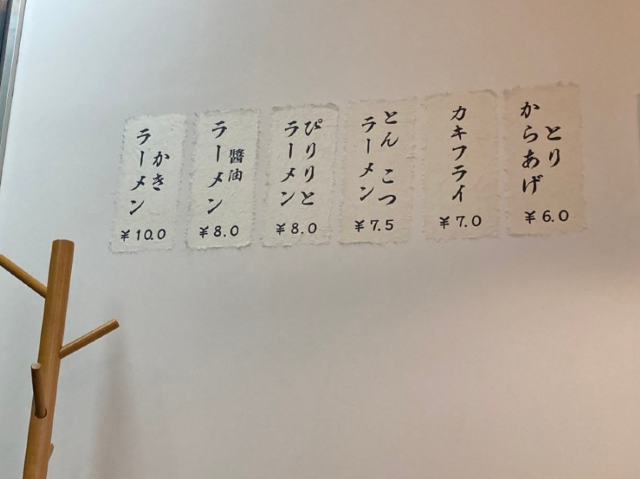 とり
からあげ
¥6.0
カキフライ
¥7.0
とんこつ
ラーメン
¥7.5
ぴりりと
ラーメン
¥8.0
醬油
ラーメン
¥8.0
かき
ラーメン
¥10.0